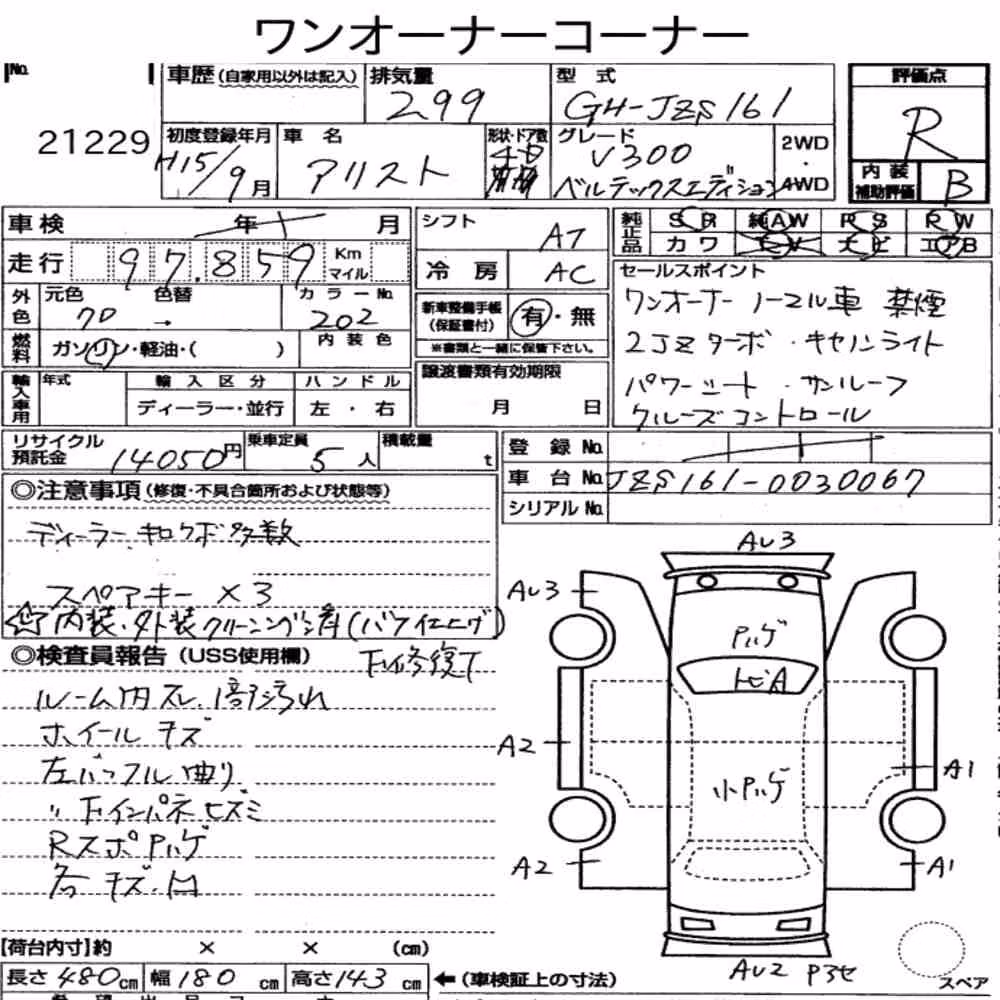 ワンオーナーコーナー
No. 21229
車歴(自家用以外は記入)
排気量 299
型式 GH-JZS161
評価点 R
内装補助評価 B
初度登録年月 H15/9月
車名 アリスト
形状・ドア数 4D
グレード V300 ベルテックスエディション
2WD・4WD
車検 年 月
走行 97.859 Km マイル
外色 元色 クロ 色替 → カラーNo. 202
燃料 ガソリン・軽油・( ) 内装色
輸入車用 年式 輸入区分 ハンドル
ディーラー・並行 左・右
シフト AT
冷房 AC
新車整備手帳(保証書付) 有・無
※書類と一緒に保管下さい。
譲渡書類有効期限
月 日
純正品 SR 純AW PS PW
カワ TV ナビ エアB
セールスポイント
ワンオーナー ノーマル車 禁煙
2JZターボ・キセノンライト
パワーシート・サンルーフ
クルーズコントロール
リサイクル預託金 14050円
乗車定員 5人
積載量 t
登録No.
車台No. JZS161-0030067
シリアルNo.
◎注意事項(修復・不具合箇所および状態等)
ディーラーキロクボ多数
スペアキー×3
内装・外装クリーニング済(バフ仕上げ)
◎検査員報告(USS使用欄) 下修復下
ルーム内スレ、 汚れ
ホイールキズ
左バッフル曲り
〃 下インパネヒズミ
RスポPハゲ
各キズ・凹
AU3
AU3
Pハゲ
トビA
A2
A1
小Pハゲ
A2
A1
AU2 P3セ
スペア
[荷台内寸]約 × × (cm)
長さ480cm 幅180cm 高さ143cm ←(車検証上の寸法)